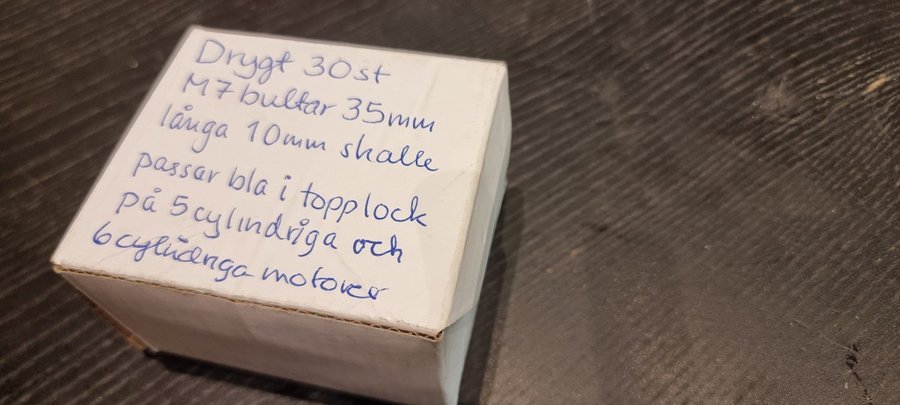 Drygt 30st
M7 bultar 35mm
långa 10mm skalle
passar bla i topplock
på 5cylindriga och
6cylindriga motorer